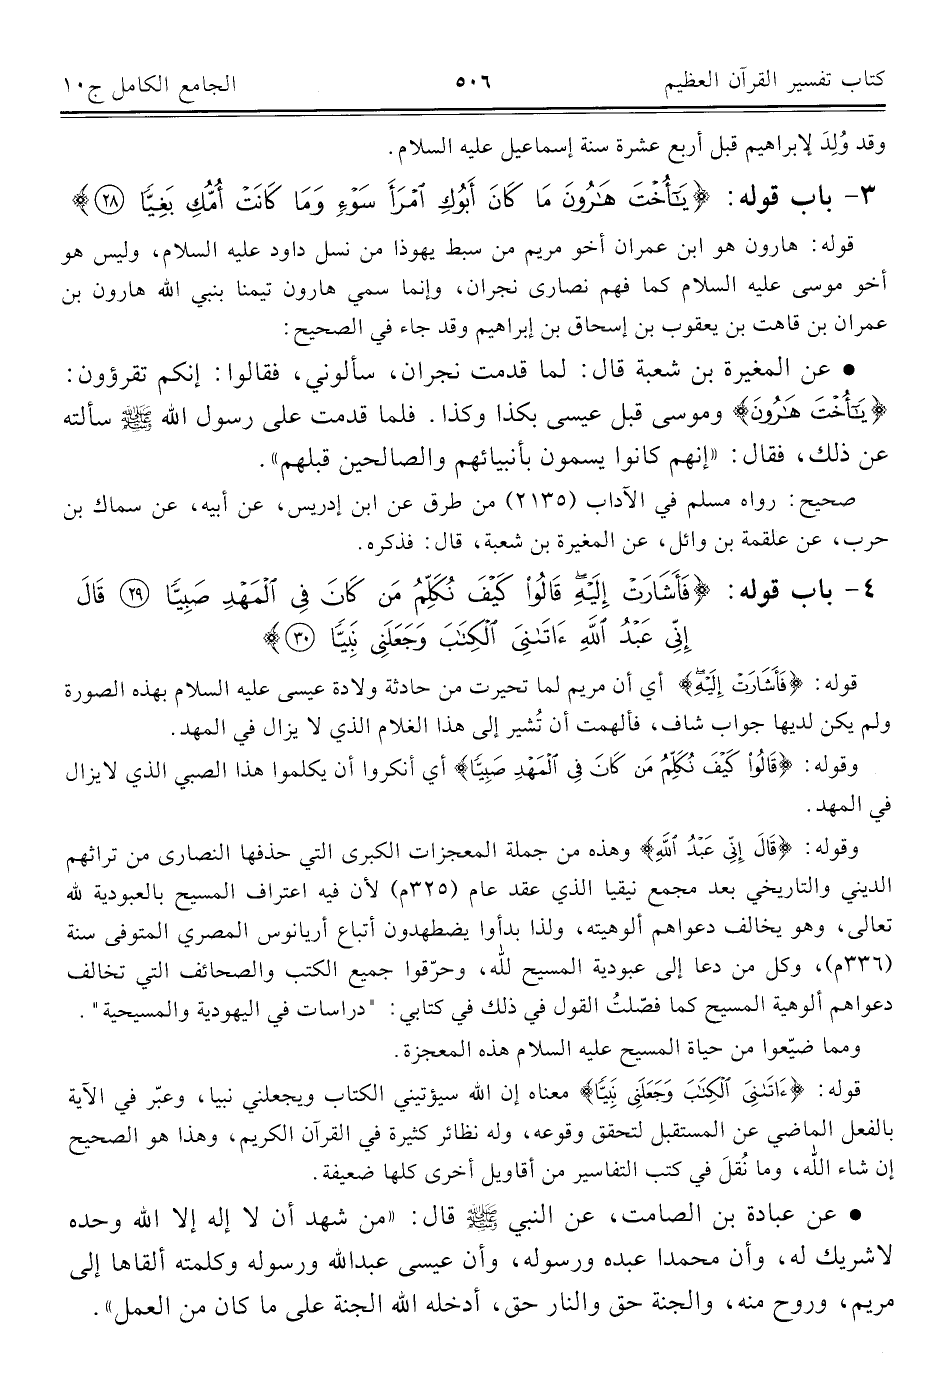 كتاب تفسير القرآن العظيم ٥٠٦ الجامع الكامل ج١٠
وقد وُلِدَ لإبراهيم قبل أربع عشرة سنة إسماعيل عليه السلام.
٣- باب قوله: ﴿يَٰٓأُخۡتَ هَٰرُونَ مَا كَانَ أَبُوكِ ٱمۡرَأَ سَوۡءٖ وَمَا كَانَتۡ أُمُّكِ بَغِيّٗا ٢٨﴾
قوله: هارون هو ابن عمران أخو مريم من سبط يهوذا من نسل داود عليه السلام، وليس هو
أخو موسى عليه السلام كما فهم نصارى نجران، وإنما سمي هارون تيمنا بنبي الله هارون بن
عمران بن قاهت بن يعقوب بن إسحاق بن إبراهيم وقد جاء في الصحيح:
• عن المغيرة بن شعبة قال: لما قدمت نجران، سألوني، فقالوا: إنكم تقرؤون:
﴿يَٰٓأُخۡتَ هَٰرُونَ﴾ وموسى قبل عيسى بكذا وكذا. فلما قدمت على رسول الله ﷺ سألته
عن ذلك، فقال: «إنهم كانوا يسمون بأنبيائهم والصالحين قبلهم».
صحيح: رواه مسلم في الآداب (٢١٣٥) من طرق عن ابن إدريس، عن أبيه، عن سماك بن
حرب، عن علقمة بن وائل، عن المغيرة بن شعبة، قال: فذكره.
٤- باب قوله: ﴿فَأَشَارَتۡ إِلَيۡهِۖ قَالُواْ كَيۡفَ نُكَلِّمُ مَن كَانَ فِي ٱلۡمَهۡدِ صَبِيّٗا ٢٩ قَالَ
إِنِّي عَبۡدُ ٱللَّهِ ءَاتَىٰنِيَ ٱلۡكِتَٰبَ وَجَعَلَنِي نَبِيّٗا ٣٠﴾
قوله: ﴿فَأَشَارَتۡ إِلَيۡهِۖ﴾ أي أن مريم لما تحيرت من حادثة ولادة عيسى عليه السلام بهذه الصورة
ولم يكن لديها جواب شاف، فألهمت أن تُشير إلى هذا الغلام الذي لا يزال في المهد.
وقوله: ﴿قَالُواْ كَيۡفَ نُكَلِّمُ مَن كَانَ فِي ٱلۡمَهۡدِ صَبِيّٗا﴾ أي أنكروا أن يكلموا هذا الصبي الذي لايزال
في المهد.
وقوله: ﴿قَالَ إِنِّي عَبۡدُ ٱللَّهِ﴾ وهذه من جملة المعجزات الكبرى التي حذفها النصارى من تراثهم
الديني والتاريخي بعد مجمع نيقيا الذي عقد عام (٣٢٥م) لأن فيه اعتراف المسيح بالعبودية لله
تعالى، وهو يخالف دعواهم ألوهيته، ولذا بدأوا يضطهدون أتباع أريانوس المصري المتوفى سنة
(٣٣٦م)، وكل من دعا إلى عبودية المسيح لله، وحرّقوا جميع الكتب والصحائف التي تخالف
دعواهم ألوهية المسيح كما فصّلتُ القول في ذلك في كتابي: "دراسات في اليهودية والمسيحية".
ومما ضيّعوا من حياة المسيح عليه السلام هذه المعجزة.
قوله: ﴿ءَاتَىٰنِيَ ٱلۡكِتَٰبَ وَجَعَلَنِي نَبِيّٗا﴾ معناه إن الله سيؤتيني الكتاب ويجعلني نبيا، وعبّر في الآية
بالفعل الماضي عن المستقبل لتحقق وقوعه، وله نظائر كثيرة في القرآن الكريم، وهذا هو الصحيح
إن شاء الله، وما نُقلَ في كتب التفاسير من أقاويل أخرى كلها ضعيفة.
• عن عبادة بن الصامت، عن النبي ﷺ قال: «من شهد أن لا إله إلا الله وحده
لاشريك له، وأن محمدا عبده ورسوله، وأن عيسى عبدالله ورسوله وكلمته ألقاها إلى
مريم، وروح منه، والجنة حق والنار حق، أدخله الله الجنة على ما كان من العمل».